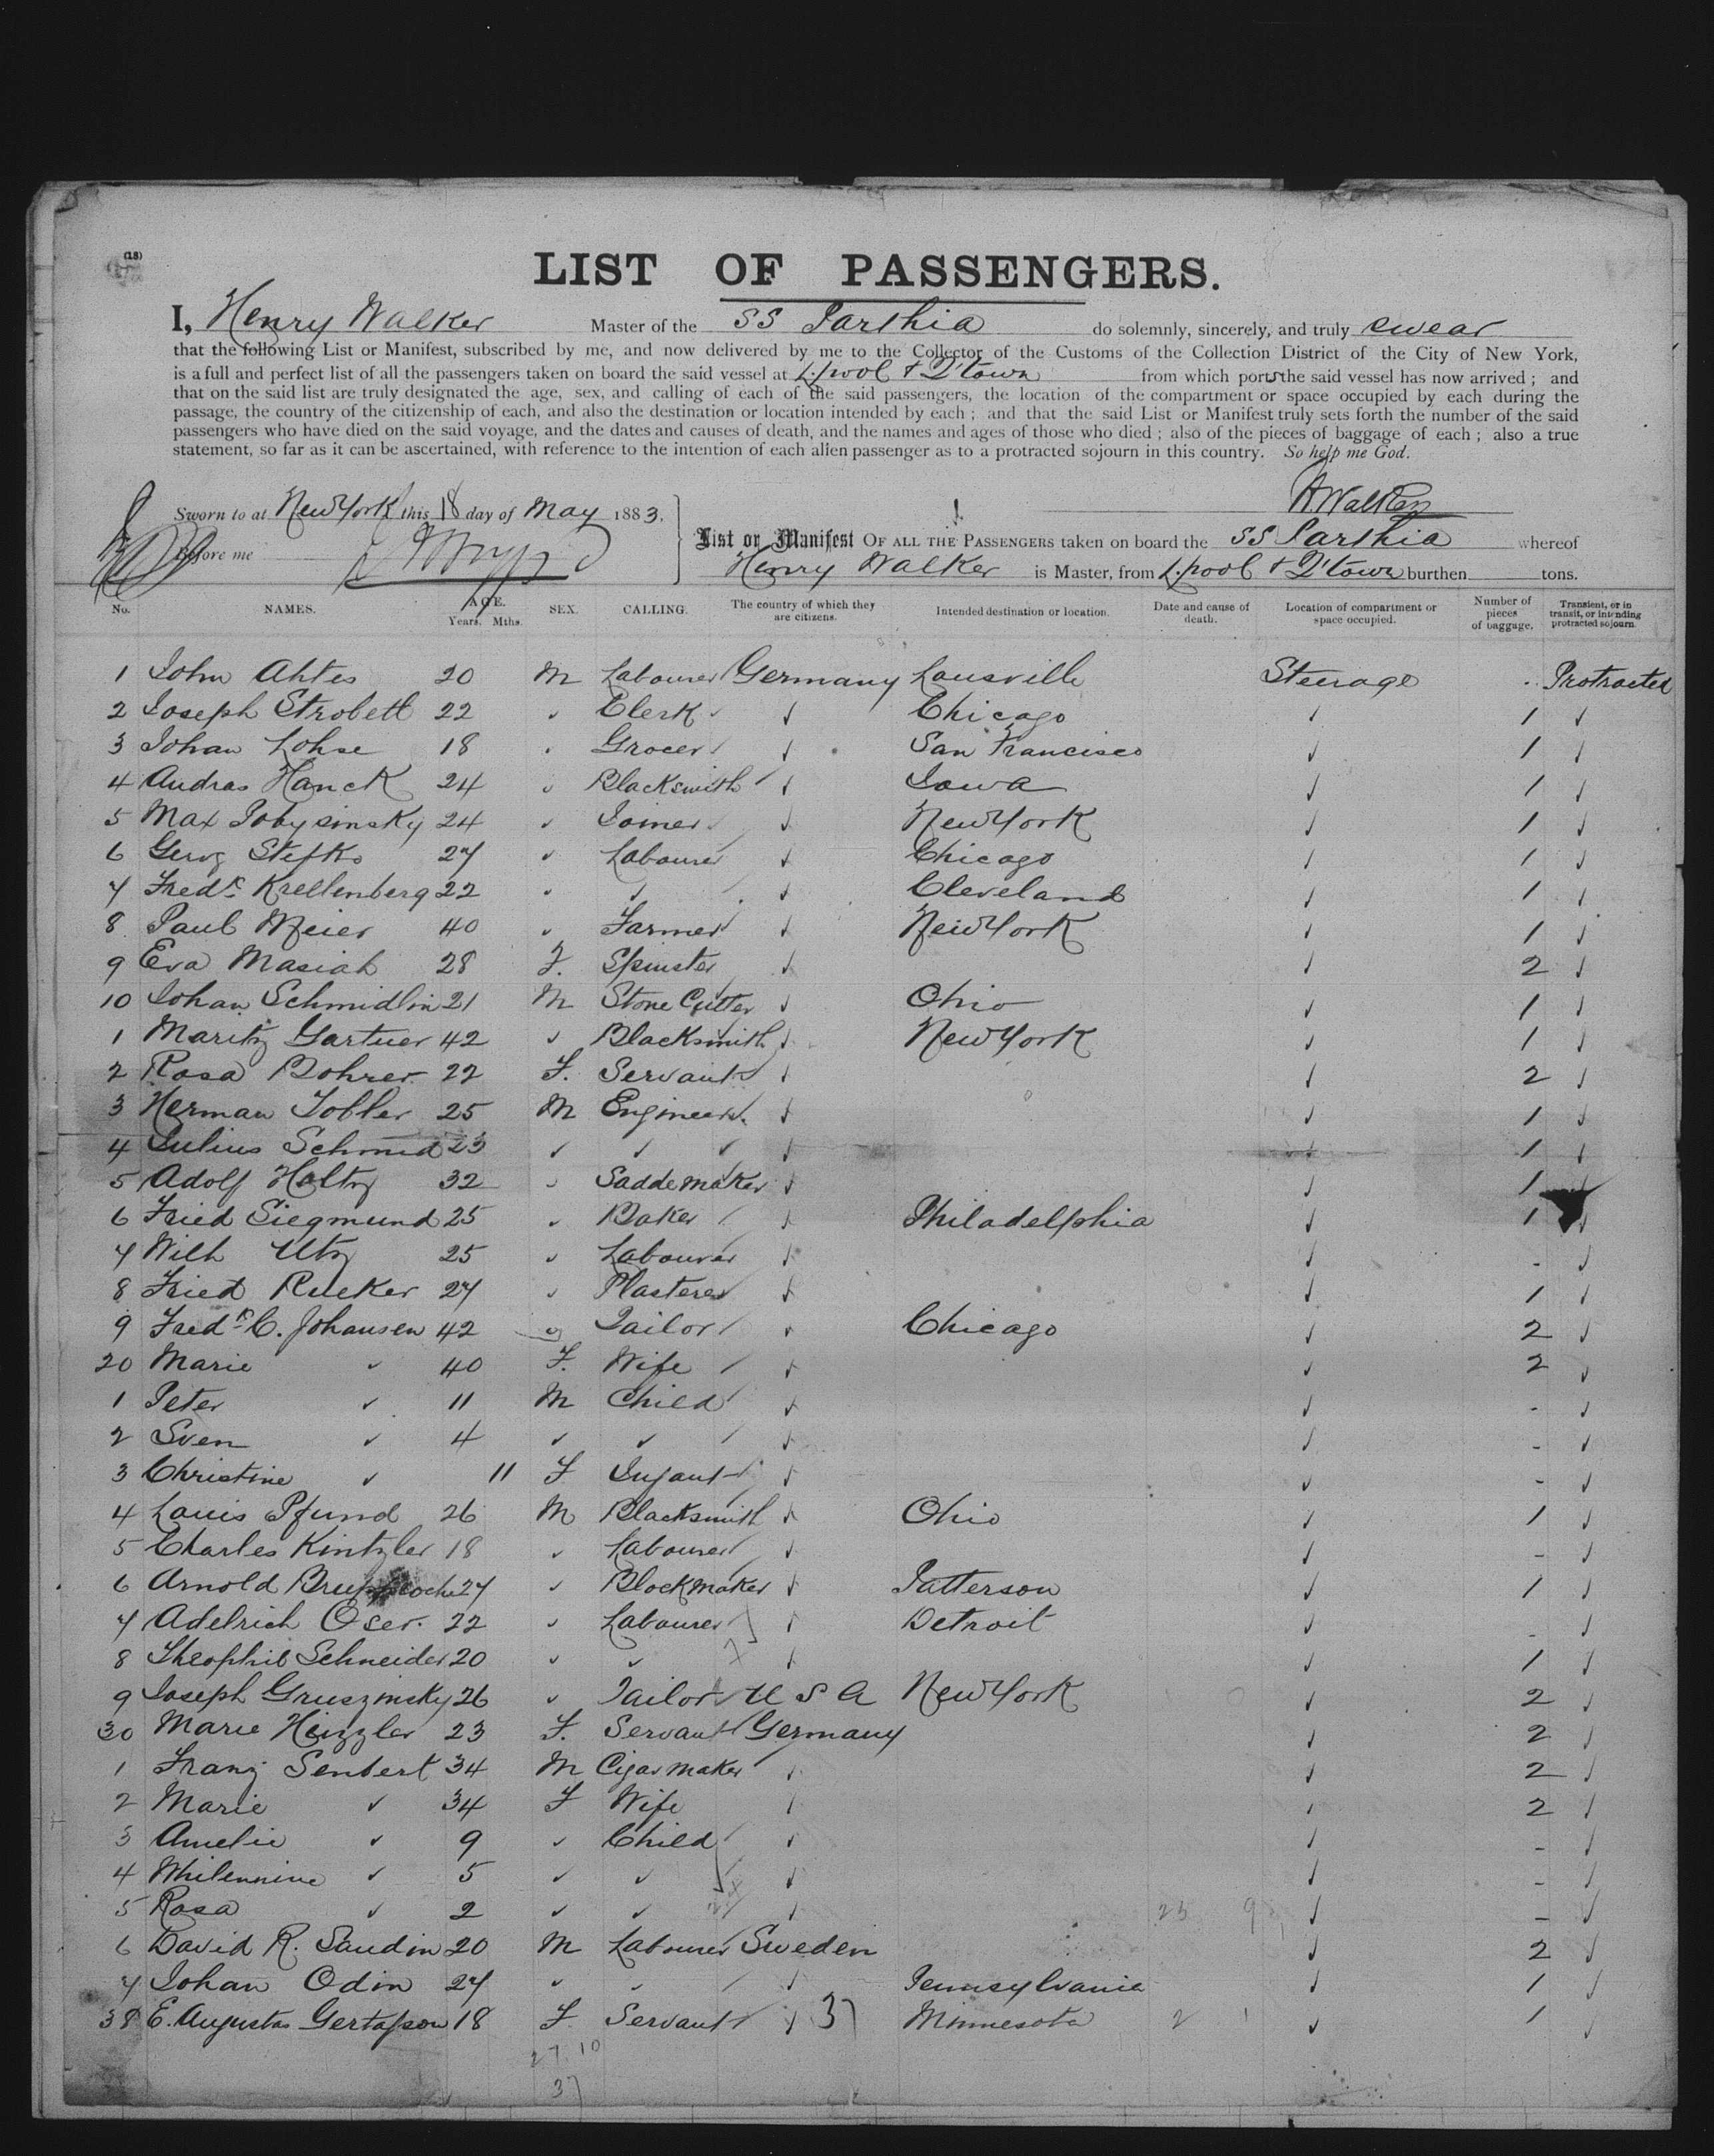 (18)
LIST OF PASSENGERS.
I, Henry Walker Master of the SS Parthia do solemnly, sincerely, and truly swear
that the following List or Manifest, subscribed by me, and now delivered by me to the Collector of the Customs of the Collection District of the City of New York,
is a full and perfect list of all the passengers taken on board the said vessel at L.pool & Q'town from which ports the said vessel has now arrived ; and
that on the said list are truly designated the age, sex, and calling of each of the said passengers, the location of the compartment or space occupied by each during the
passage, the country of the citizenship of each, and also the destination or location intended by each ; and that the said List or Manifest truly sets forth the number of the said
passengers who have died on the said voyage, and the dates and causes of death, and the names and ages of those who died ; also of the pieces of baggage of each ; also a true
statement, so far as it can be ascertained, with reference to the intention of each alien passenger as to a protracted sojourn in this country. So help me God.
H Walker
Sworn to at New York this 18 day of May 1883,
Before me
List or Manifest OF ALL THE PASSENGERS taken on board the SS Parthia whereof
Henry Walker is Master, from L.pool & Q'town burthen tons.
No. NAMES. AGE. Years. Mths. SEX. CALLING. The country of which they are citizens. Intended destination or location. Date and cause of death. Location of compartment or space occupied. Number of pieces of baggage. Transient, or in transit, or intending protracted sojourn.
1 John Ahtes 20 M Labourer Germany Lousville Steerage - Protracted
2 Joseph Strobett 22 ✓ Clerk ✓ Chicago ✓ 1 ✓
3 Johan Lohse 18 ✓ Grocer ✓ San Francisco ✓ 1 ✓
4 Andras Hanck 24 ✓ Blacksmith ✓ Iowa ✓ 1 ✓
5 Max 24 ✓ Joiner ✓ New York ✓ 1 ✓
6 Stefko 27 ✓ Labourer ✓ Chicago ✓ 1 ✓
7 Fredk Krellenberg 22 ✓ ✓ ✓ Cleveland ✓ 1 ✓
8 Paul Meier 40 ✓ Farmer ✓ New York ✓ 1 ✓
9 Eva Masiah 28 F. Spinster ✓ ✓ 2 ✓
10 Johan Schmidlin 21 M Stone Cutter ✓ Ohio ✓ 1 ✓
1 Maritz Gartner 42 ✓ Blacksmith ✓ New York ✓ 1 ✓
2 Rosa Bohrer 22 F. Servant ✓ ✓ 2 ✓
3 Herman Tobler 25 M Engineer ✓ ✓ 1 ✓
4 Julius Schmid 23 ✓ ✓ ✓ ✓ 1 ✓
5 Adolf Holtz 32 ✓ Saddemaker ✓ ✓ 1
6 Fried Siegmund 25 ✓ Baker ✓ Philadelphia ✓ 1 ✓
7 Wilh Utz 25 ✓ Labourer ✓ ✓ - ✓
8 Fried Rucker 27 ✓ Plasterer ✓ ✓ 1 ✓
9 Fredk C. Johansen 42 ✓ Tailor ✓ Chicago ✓ 2 ✓
20 Marie ✓ 40 F. Wife ✓ ✓ 2 ✓
1 Peter ✓ 11 M Child ✓ ✓ - ✓
2 Sven ✓ 4 ✓ ✓ ✓ ✓ - ✓
3 Christine ✓ 11 F Infant ✓ ✓ - ✓
4 Louis Pfund 26 M Blacksmith ✓ Ohio ✓ 1 ✓
5 Charles Kintzler 18 ✓ Labourer ✓ ✓ - ✓
6 Arnold 27 ✓ Blockmaker ✓ Patterson ✓ 1 ✓
7 Adelrich Oser. 22 ✓ Labourer ✓ Detroit ✓ - ✓
8 Theophil Schneider 20 ✓ ✓ ✓ ✓ 1 ✓
9 Joseph Gruszinsky 26 ✓ Tailor U S A New York ✓ 2 ✓
30 Marie Heizzler 23 F. Servant Germany ✓ 2 ✓
1 Franz Senbert 34 M Cigar maker ✓ ✓ 2 ✓
2 Marie ✓ 34 F Wife ✓ ✓ 2 ✓
3 Amelie ✓ 9 ✓ Child ✓ ✓ - ✓
4 Whilemnine ✓ 5 ✓ ✓ ✓ ✓ - ✓
5 Rosa ✓ 2 ✓ ✓ ✓ 23 9 ✓ - ✓
6 David R. Sandin 20 M Labourer Sweden ✓ 2 ✓
7 Johan Odin 27 ✓ ✓ ✓ Pennsylvania ✓ 1 ✓
38 E. Augustas Gertafson 18 F. Servant ✓ 37 Minnesota 2 1 ✓ 1 ✓
27 10
37